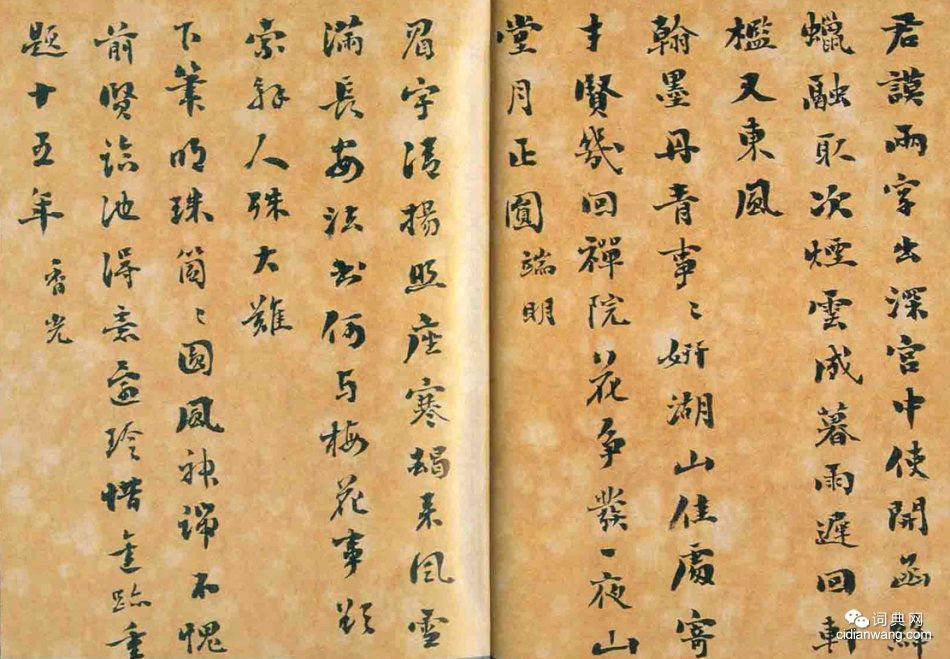 君謨兩字出深宮中使開函絳
蠟融取次煙雲成暮雨遲回軒
檻又東風
翰墨丹青事〻妍湖山佳處寄
才賢幾回禪院花爭發一夜山
堂月正圓 端明
眉宇清揚照座寒朅來風雪
滿長安法書何與梅花事
索解人殊大難
下筆明珠箇〻圓風神端不愧
前賢臨池得意還珍惜跡重
題十五年 香光
词典网
cidianwang.com